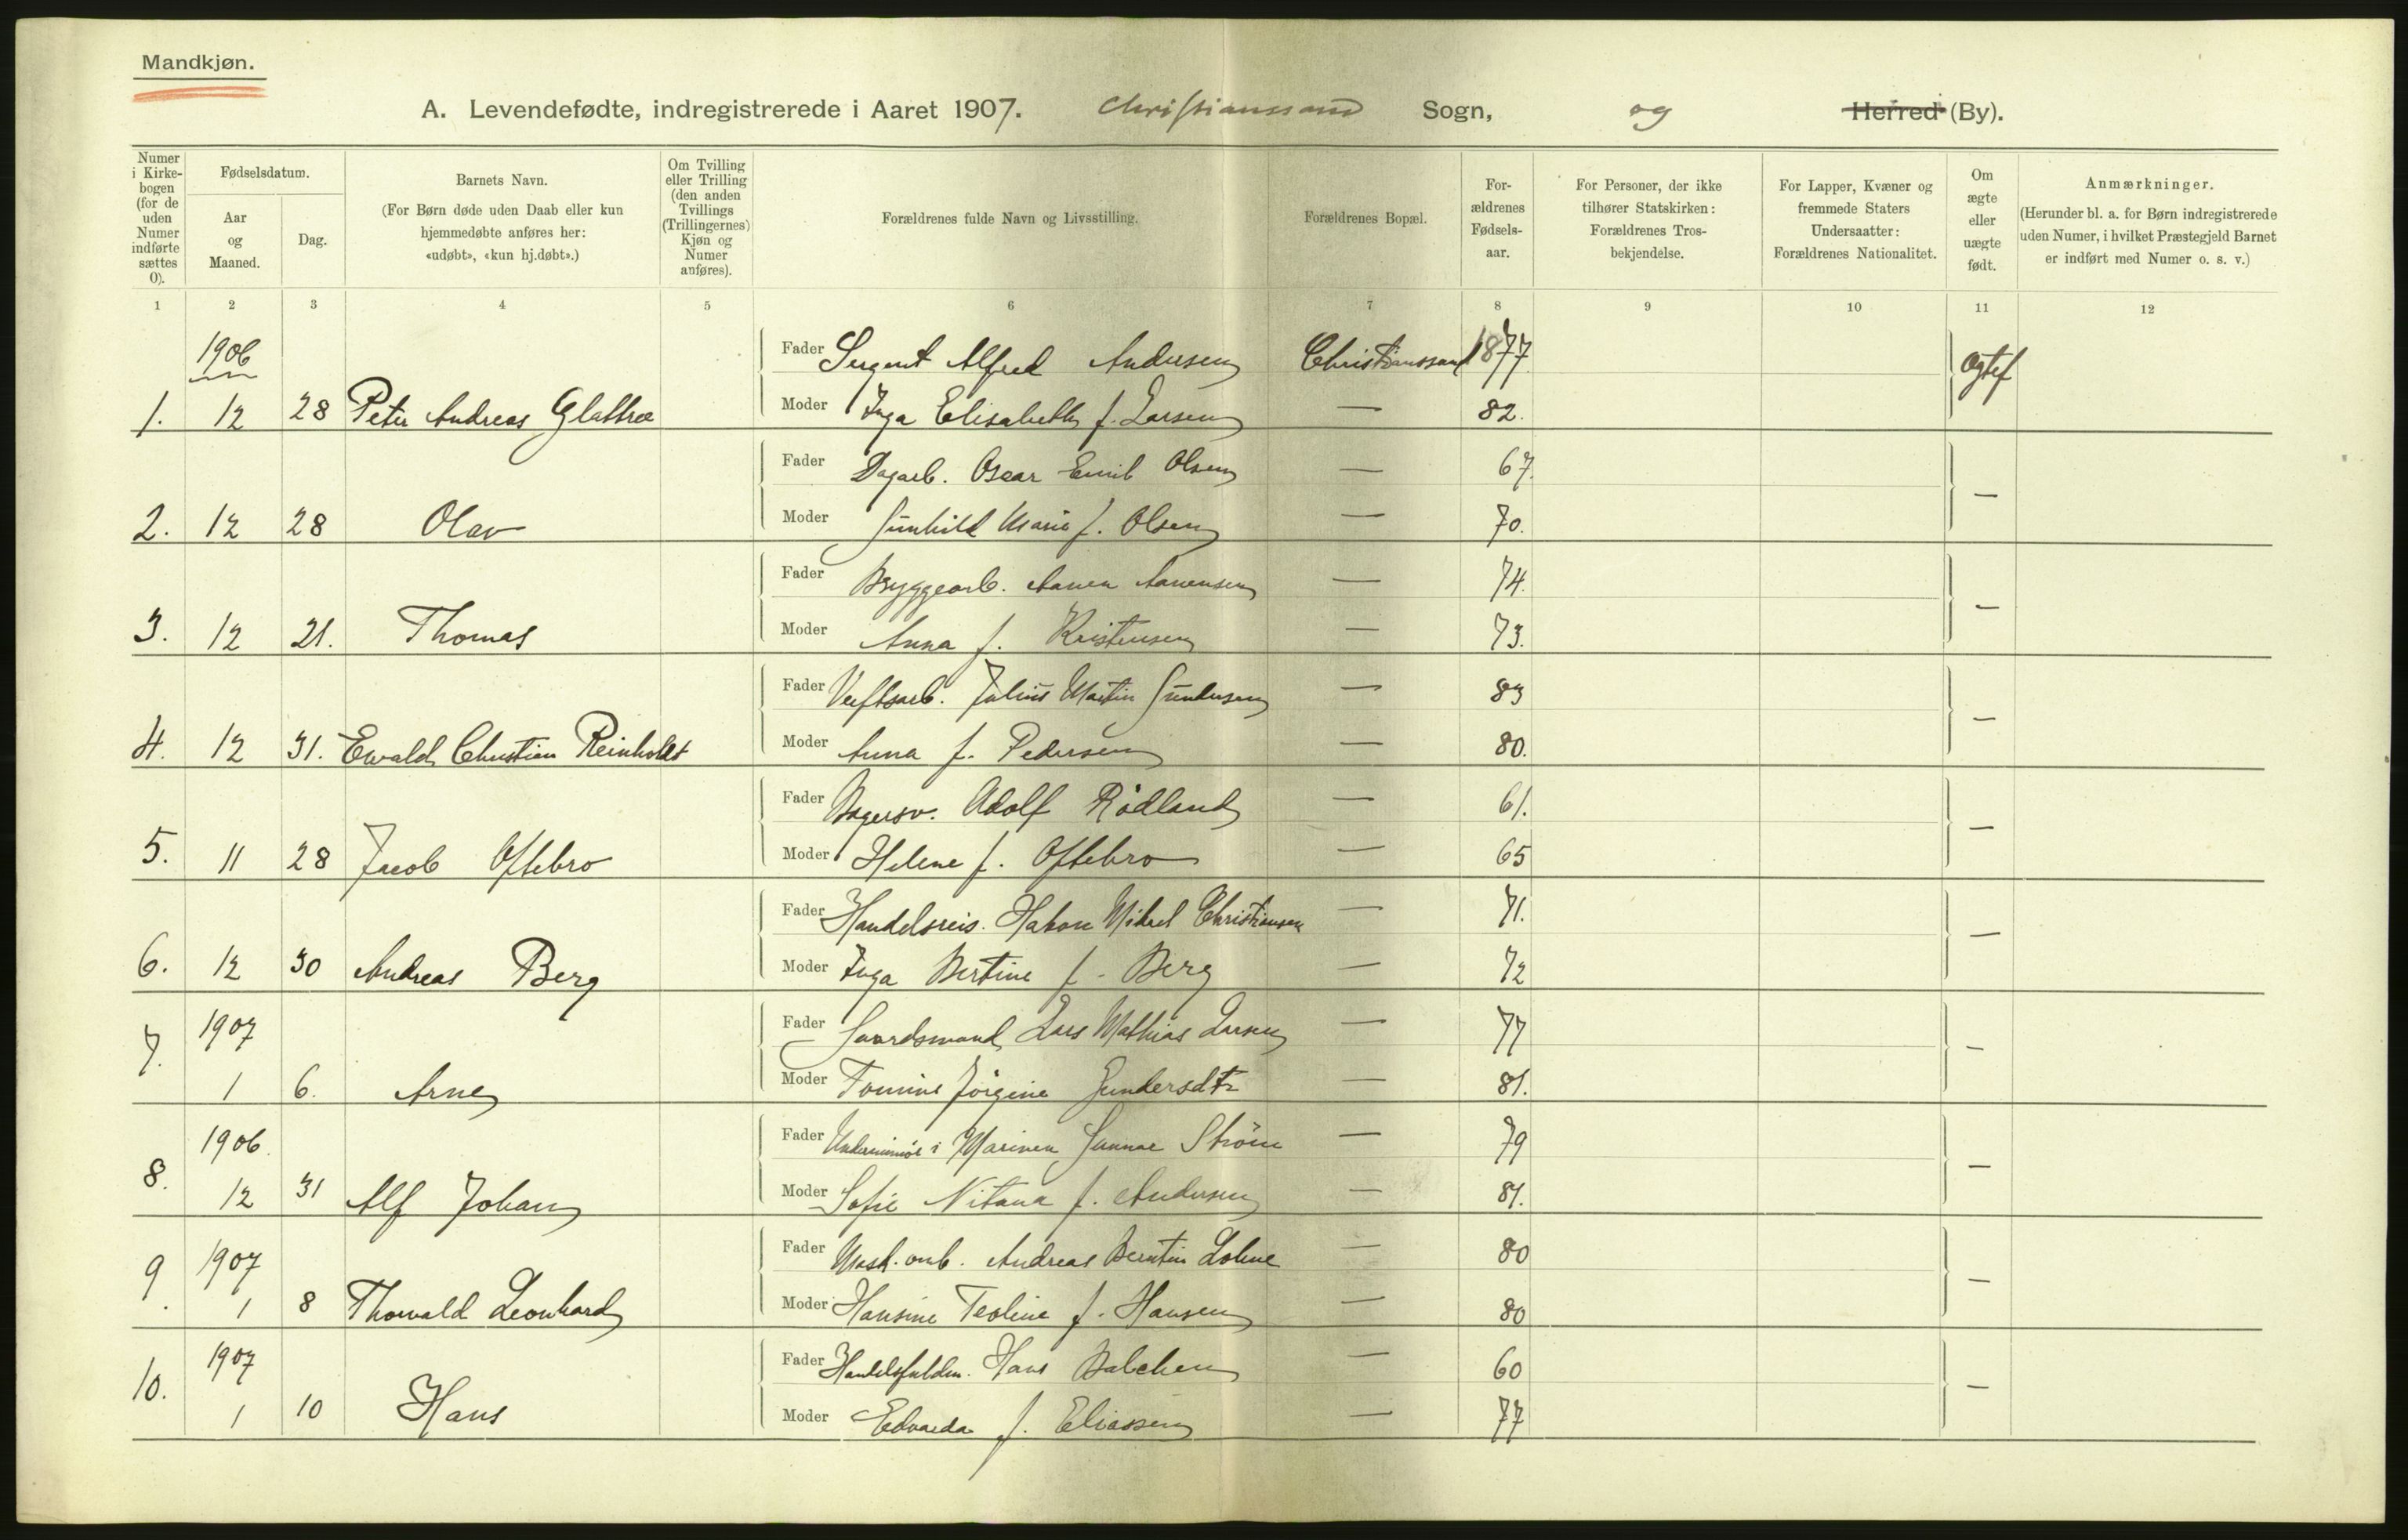 Mandkjøn.
A. Levendefødte, indregistrerede i Aaret 1907. Christianssand Sogn, og Herred (By).
Numer i Kirkebogen (for de uden Numer indførte sættes 0).
Fødselsdatum.
Aar og Maaned.
Dag.
Barnets Navn.
(For Børn døde uden Daab eller kun hjemmedøbte anføres her: «udøbt», «kun hj.døbt».)
Om Tvilling eller Trilling (den anden Tvillings (Trillingernes) Kjøn og Numer anføres).
Forældrenes fulde Navn og Livsstilling.
Forældrenes Bopæl.
Forældrenes Fødselsaar.
For Personer, der ikke tilhører Statskirken: Forældrenes Trosbekjendelse.
For Lapper, Kvæner og fremmede Staters Undersaatter: Forældrenes Nationalitet.
Om ægte eller uægte født.
Anmærkninger.
(Herunder bl. a. for Børn indregistrerede uden Numer, i hvilket Præstegjeld Barnet er indført med Numer o. s. v.)
1 2 3 4 5 6 7 8 9 10 11 12
1906 Fader Sergent Alfred Andersen Christianssand 1877
1. 12 28 Peter Andreas Moder Inga Elisabeth f. Larsen — 82.
Fader Dagarb. Oscar Emil Olsen — 67.
2. 12 28 Olav Moder Gunhild Marie f. Olsen — 70. —
Fader Bryggearb. Aanen Aanensen — 74.
3. 12 21. Thomas Moder Anna f. Kristensen — 73. —
Fader Verftsarb. Julius Martin Gundersen — 83
4. 12 31. Ewald Christian Reinholdt Moder Anna f. Pedersen — 80. —
Fader Bagersv. Adolf Rödland — 61.
5. 11 28 Jacob Oftebro Moder Helene f. Oftebro — 65 —
Fader Handelsreis. Hakon Mikael Christiansen — 71.
6. 12 30 Andreas Berg Moder Inga Bertine f. Berg — 72 —
1907 Fader Gaardsmand Lars Mathias Larsen — 77
7. 1 6. Arne Moder Tomine Jörgine Gundersdtr — 81. —
1906. Fader i Marinen Gunnar Ström — 79
8. 12 31 Alf Johan Moder Sofie f. Andersen — 81. —
1907 Fader Andreas Berntin — 80
9. 1 8 Thorvald Leonhard Moder Hansine Teoline f. Hansen — 80 —
1907 Fader Hans Balchen — 60
10. 1 10 Hans Moder Edvarda f. Eliassen — 77 —